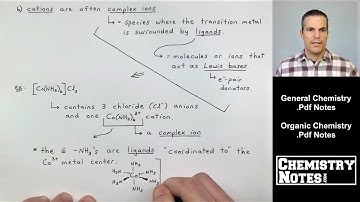 b) cations are often complex ions
↳ = species where the transition metal
is surrounded by ligands.
↳ = molecules or ions that
act as Lewis bases.
↳ e⁻-pair
donators.
ex: [Co(NH₃)₆]Cl₃
↳ contains 3 chloride (Cl⁻) anions
and one Co(NH₃)₆³⁺ cation.
↳ a complex ion
* the 6 -NH₃'s are ligands "coordinated to" the
Co³⁺ metal center:
NH₃
H₃N NH₃
Co
H₃N NH₃
NH₃
General Chemistry
.Pdf Notes
Organic Chemistry
.Pdf Notes
CHEMISTRY
NOTES.COM